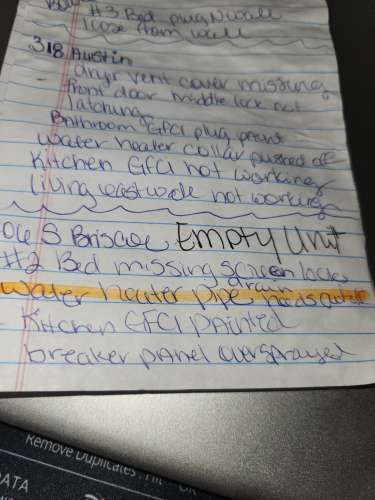 #3 Bed plug N wall
loose from wall
318 Austin
- dryr vent cover missing
- front door middle lock not
latching
Bathroom GFCI plug paint
water heater collar pushed off
Kitchen GFCI not working
living east wall not working
06 S Briscoe Empty Unit
#2 Bed missing screen locks
water heater drain pipe needs
- Kitchen GFCI painted
breaker panel oversprayed
Remove Duplicates
DATA